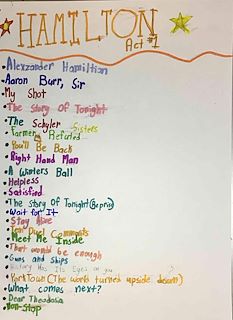 HAMILTON
Act #1
Alexzander Hamiltian
Aaron Burr, Sir
My Shot
The Story Of Tonight
The Schyler Sisters
Farmer Refuted
You'll Be Back
Right Hand Man
A Winters Ball
Helpless
Satisfied
The story Of Tonight (Reprise)
Wait for It
Stay Alive
Ten Duel Commandments
Meet Me Inside
That would be enough
Guns and Ships
History Has Its Eyes on you
Yorktown (The world turned upside down)
What comes next?
Dear Theodosia
Non-stop